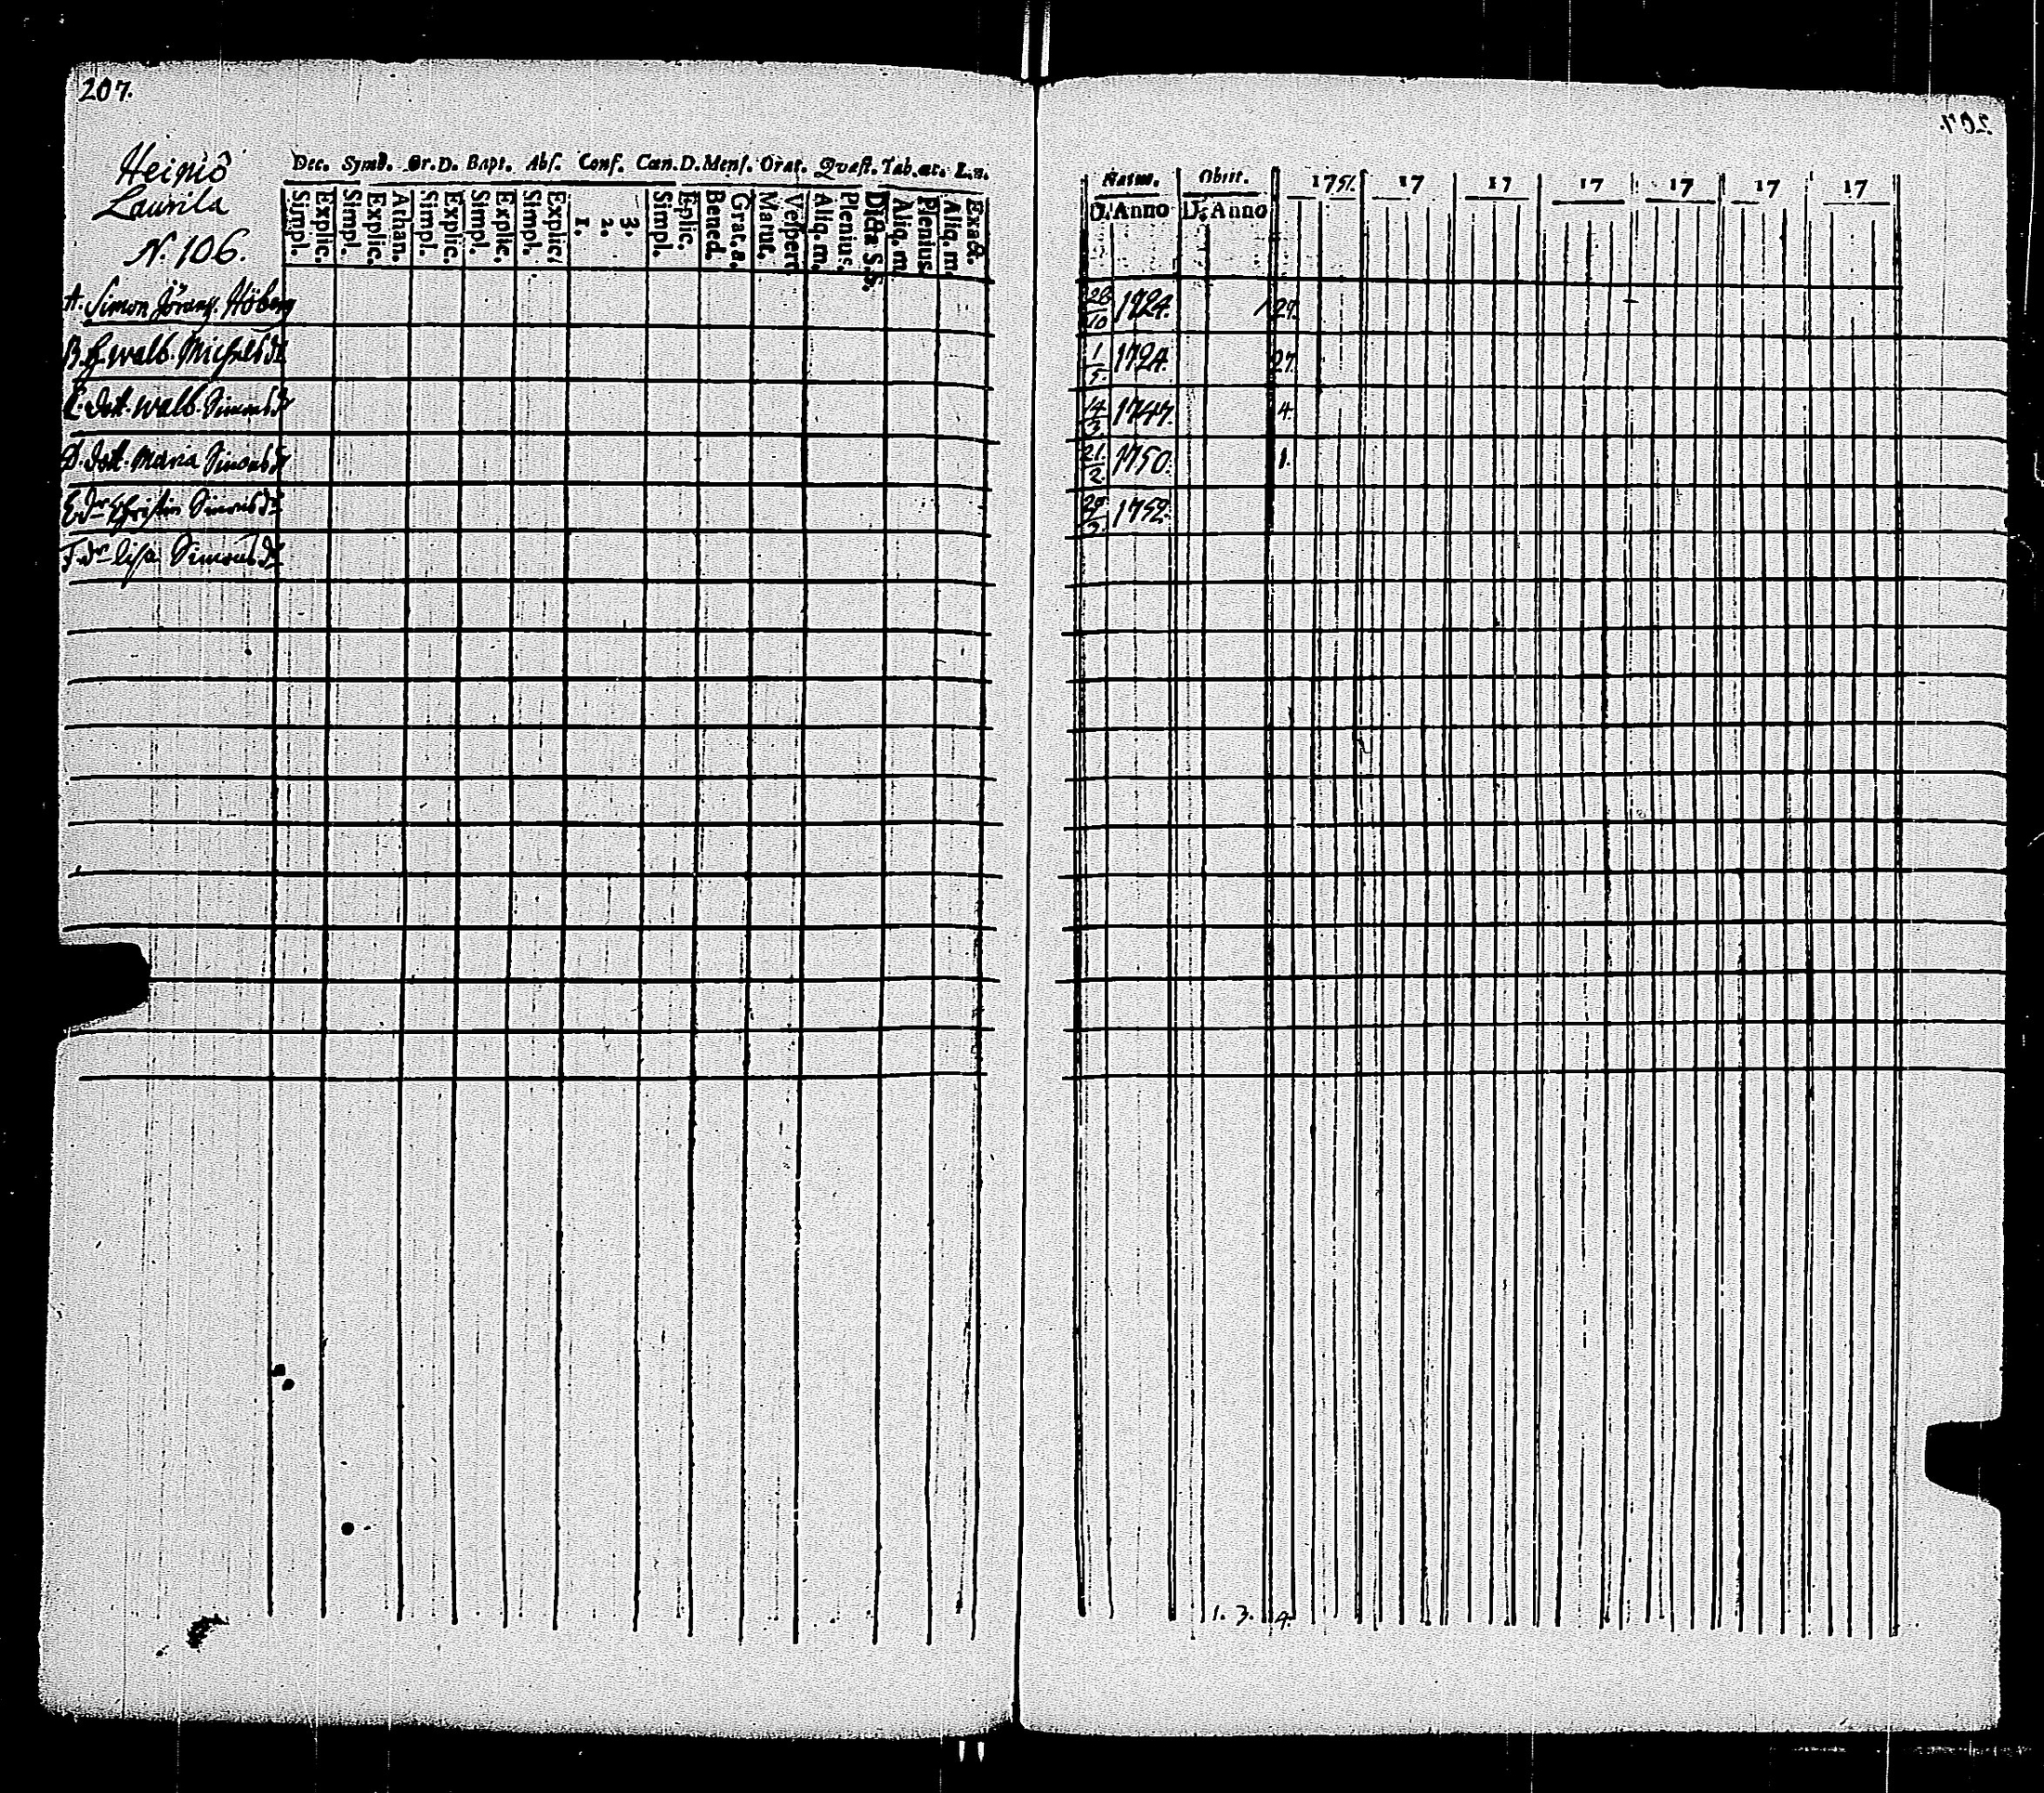 207.
Heiniö
Laurila
N. 106.
Dec. Symb. Or. D. Bapt. Abs. Conf. Cœn. D. Mens. Orat. Quæst. Tab. œc. L. n.
Simpl. Explic. Simpl. Explic. Athan. Simpl. Explic. Simpl. Explic. Simpl. Explic. 1. 2. 3. Simpl. Eplic. Bened. Grat. a. Matut. Vespert Aliq. m. Plenius. Dicta S. S. Aliq. m. Plenius. Aliq. m. Exact.
A. Simon Görans. Höberg
B. H. Walb. Michelsdr
C. dott. Walb. Simonsdr
D. dott. Maria Simonsdr
E. dr Christin Simonsdr
F. dr Lisa Simonsdr
207.
Natus. Obiit. 1751. 17 17 17 17 17 17
D. Anno D. Anno
28/10 1724. 27.
1/5. 1724. 27.
14/3. 1747. 4.
21/2. 1750. 1.
1752.
1. 3. 4.